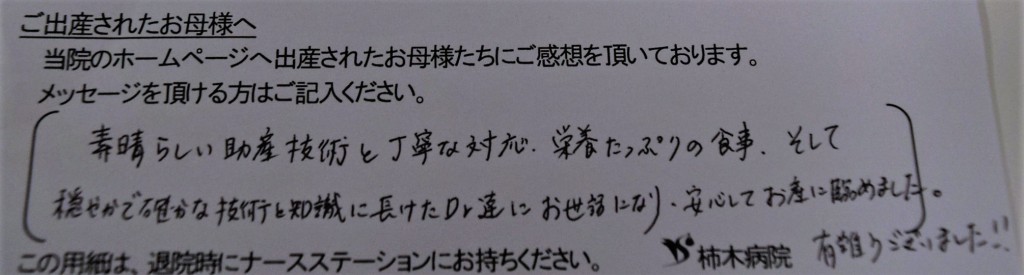 ご出産されたお母様へ
当院のホームページへ出産されたお母様たちにご感想を頂いております。
メッセージを頂ける方はご記入ください。
素晴らしい助産技術と丁寧な対応、栄養たっぷりの食事、そして
穏やかで確かな技術と知識に長けたDr達にお世話になり、安心してお産に臨めました。
有難うございました!!
この用紙は、退院時にナースステーションにお持ちください。 柿木病院